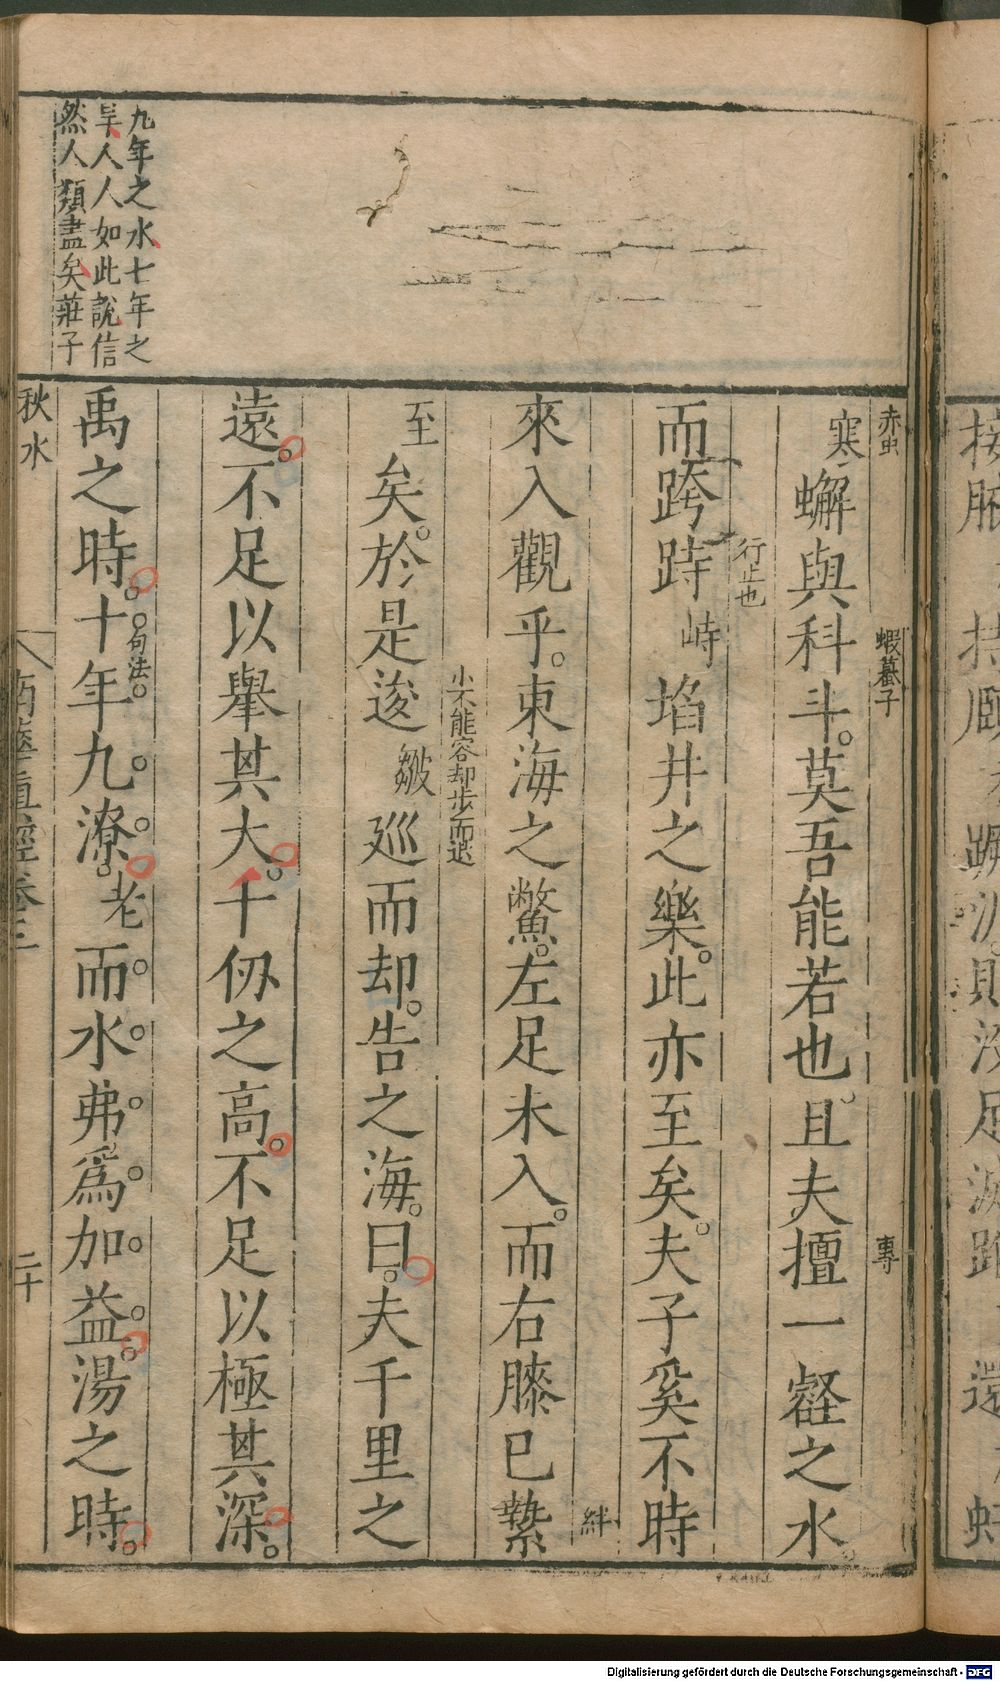 接腋
持頤
蹶泥則沒足滅跗
還
赤虫
蝦蟇子
專
寒
蠏與科斗。莫吾能若也。且夫擅一壑之水
行止也
而跨跱峙埳井之樂。此亦至矣。夫子奚不時
來入觀乎。東海之鱉。左足未入。而右膝已縶
絆
小不能容却步而退
至
矣。於是逡皴巡而却。告之海。曰。夫千里之
遠。不足以舉其大。千仞之高。不足以極其深。
句法
禹之時。十年九潦。
老
而水弗爲加益。湯之時。
九年之水七年之
旱人人如此說信
然人類盡矣莊子
秋水
南華眞經卷三
二十
Digitalisierung gefördert durch die Deutsche Forschungsgemeinschaft - DFG